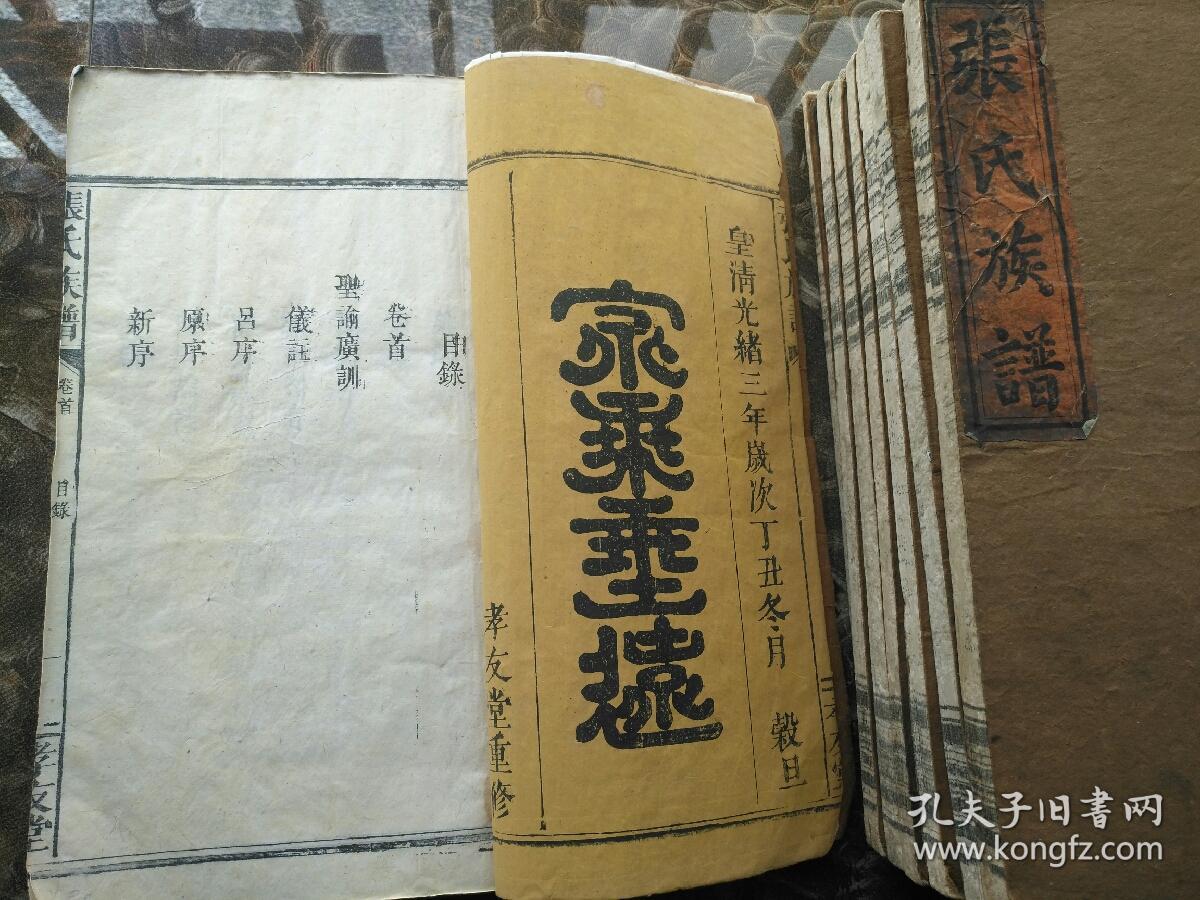 張氏族譜
皇清光緒三年歲次丁丑冬月 穀旦
家乘垂遠
孝友堂重修
目錄
卷首
聖諭廣訓
儀註
呂序
原序
新序
張氏族譜
卷首
目錄
一
孝友堂
孔夫子旧书网
www.kongfz.com